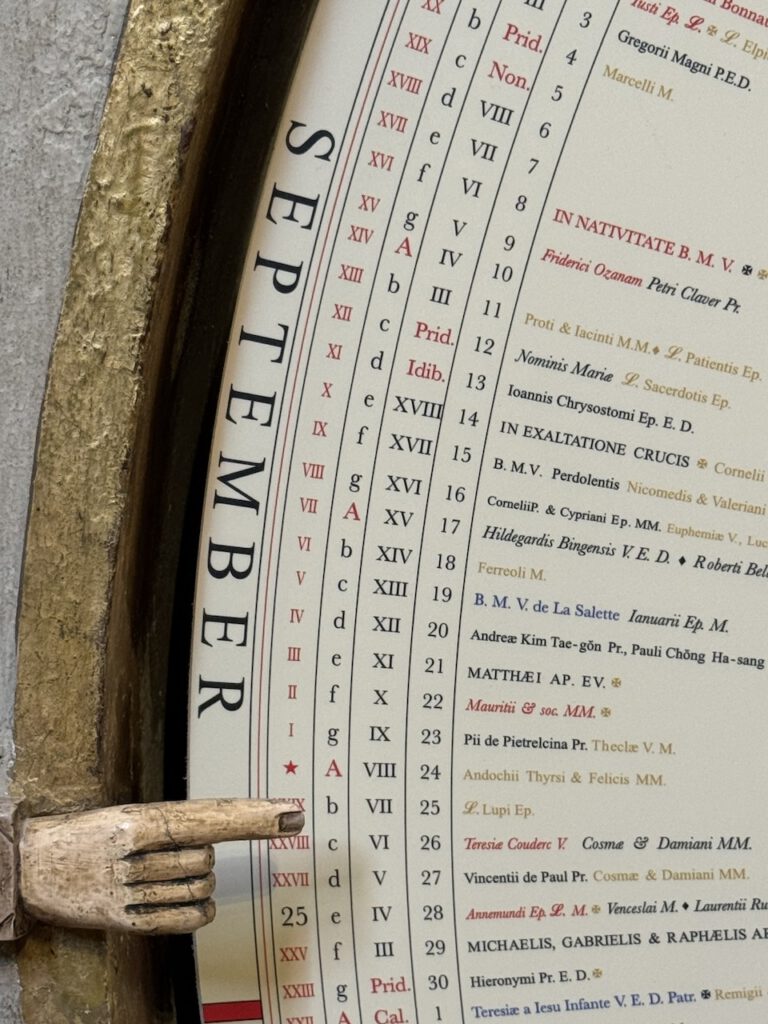 SEPTEMBER
Iusti Ep. L. ✠ L.
III 3 Gregorii Magni P.E.D.
XX b Prid. 4 Marcelli M.
XIX c Non. 5
XVIII d VIII 6
XVII e VII 7
XVI f VI 8 IN NATIVITATE B. M. V. ✠
XV g V 9 Friderici Ozanam Petri Claver Pr.
XIV A IV 10
XIII b III 11 Proti & Iacinti M.M. ♦ L. Patientis Ep.
XII c Prid. 12 Nominis Mariæ L. Sacerdotis Ep.
XI d Idib. 13 Ioannis Chrysostomi Ep. E. D.
X e XVIII 14 IN EXALTATIONE CRUCIS ✠ Cornelii
IX f XVII 15 B. M.V. Perdolentis Nicomedis & Valeriani
VIII g XVI 16 CorneliiP. & Cypriani Ep. MM. Euphemiæ V., Luc
VII A XV 17 Hildegardis Bingensis V. E. D. ♦ Roberti Bell
VI b XIV 18 Ferreoli M.
V c XIII 19 B. M. V. de La Salette Ianuarii Ep. M.
IV d XII 20 Andreæ Kim Tae-gŏn Pr., Pauli Chŏng Ha-sang
III e XI 21 MATTHÆI AP. EV. ✠
II f X 22 Mauritii & soc. MM. ✠
I g IX 23 Pii de Pietrelcina Pr. Theclæ V. M.
★ A VIII 24 Andochii Thyrsi & Felicis MM.
b VII 25 L. Lupi Ep.
XXVIII c VI 26 Teresiæ Couderc V. Cosmæ & Damiani MM.
XXVII d V 27 Vincentii de Paul Pr. Cosmæ & Damiani MM.
25 e IV 28 Annemundi Ep. L. M. ✠ Venceslai M. ♦ Laurentii Ru
XXV f III 29 MICHAELIS, GABRIELIS & RAPHÆLIS
XXIII g Prid. 30 Hieronymi Pr. E. D. ✠
XXII A Cal. 1 Teresiæ a Iesu Infante V. E. D. Patr. ✠ Remigii